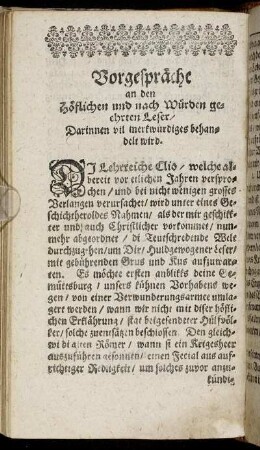 Vorgespräche
an den
Höflichen und nach Würden ge-
ehrten Leser/
Darinnen vil merkwürdiges behan-
delt wird.
DI Lehrreiche Clio/ welche al-
bereit vor etlichen Jahren verspro-
chen/ und bei nicht wenigen grosses
Verlangen verursachet/ wird unter eines Ge-
schichtheroldes Nahmen/ als der mir geschikk-
ter und auch Christlicher vorkommet/ nun-
mehr abgeordnet/ di Teutschredende Welt
durchzugehen/ um Dir/ Huldgewogener Leser/
mit gebührenden Grus und Kus aufzuwar-
ten. Es möchte ersten anbliks deine Ge-
mühtsburg/ unsers kühnen Vorhabens we-
gen/ von einer Verwunderungsarmee umla-
gert werden/ wann wir nicht mit diser höflich-
en Erklährung/ stat beigesendeter Hülfvöl-
ker/ solche zu entsätzen beschlossen. Den gleich-
wi di alten Römer/ wann si ein Krigesheer
auszuführen gesonnen/ einen Fecial aus auf-
richtiger Redligkeit/ um solches zuvor anzu-
kündig